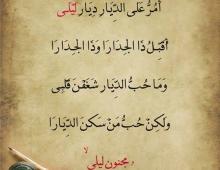 أَمُرُّ عَلَى الدِّيَارِ دِيَارِ لَيْلَى
أُقَبِّلُ ذَا الجِدَارَا وَذَا الجِدَارَا
وَمَا حُبُّ الدِّيَارِ شَغَفْنَ قَلْبِي
وَلَكِنْ حُبُّ مَنْ سَكَنَ الدِّيَارَا
مجنون ليلى